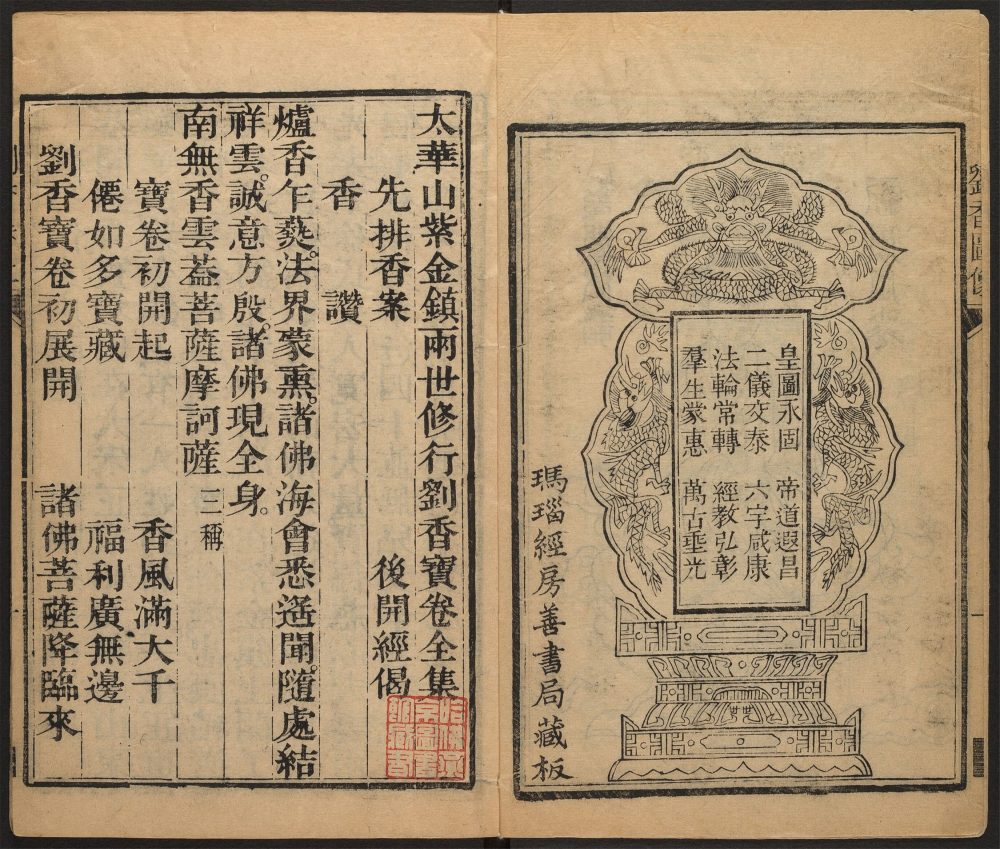 劉香圖像
皇圖永固　帝道遐昌
二儀交泰　六字咸康
法輪常轉　經教弘彰
羣生蒙惠　萬古垂光
瑪瑙經房善書局藏板
一
太華山紫金鎮兩世修行劉香寶卷全集
先排香案　後開經偈
香　讚
爐香乍爇。法界蒙熏。諸佛海會悉遙聞。隨處結
祥雲。誠意方殷。諸佛現全身。
南無香雲蓋菩薩摩訶薩　三稱
寶卷初開起　香風滿大千
僊如多寶藏　福利廣無邊
劉香寶卷初展開　諸佛菩薩降臨來